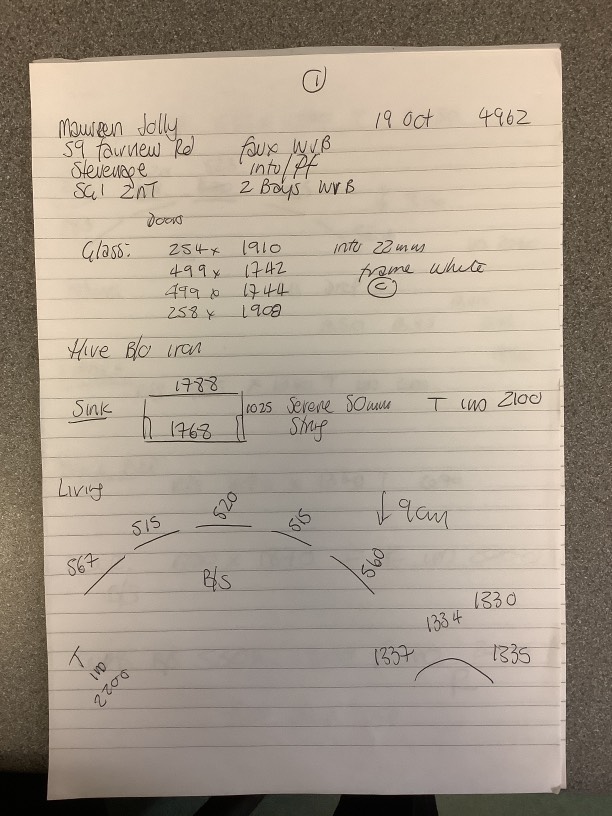 ①
Maureen Jolly 19 Oct 4962
59 fairview Rd faux WVB
Stevenage into/Pf
SG1 2NT 2 Bays WVB
Doors
Glass: 254 x 1910 into 22mm
499 x 1742 frame white
499 x 1744 ©
258 x 1908
Hive B/O iron
1788
Sink 1025 Serene 50mm T ino 2100
1768 String
Living
520
515 515 ↓ 9cm
567 560
B/S
1330
1334
T 1337 1335
ino
2200